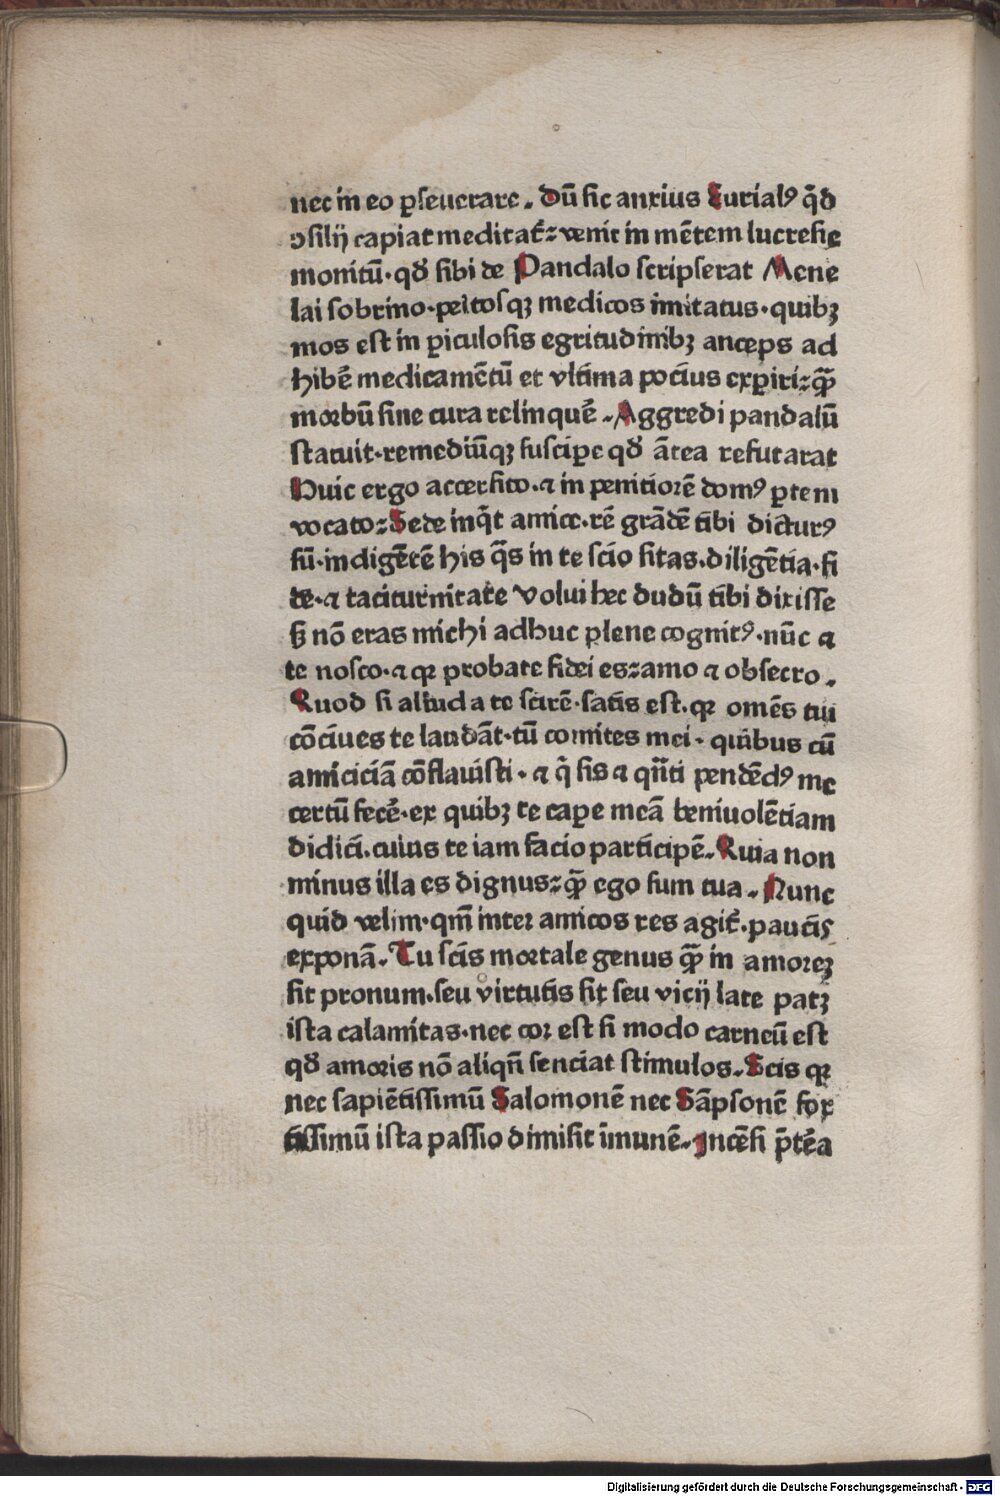 nec in eo ꝑseuerare. Dū sic anxius Eurialꝰ q̄d
ↄsilij capiat meditat᷑: venit in mētem lucresie
monitū·qð sibi de Pandalo scripserat Mene
lai sobrino·peitosqꝫ medicos imitatus·quibꝫ
mos est in ꝑiculosis egritudinibꝫ anceps ad
hibē medicamētū et vltima pocius exꝑiri: q̄ꝫ
morbū sine cura relinquē. Aggredi pandalū
statuit·remediūqꝫ susciꝑe qð ātea refutarat
Huic ergo accersito·⁊ in penitiorē domꝰ ꝑtem
vocato: Sede inq̄t amice·rē grādē tibi dicturꝰ
sū·indigētē his q̄s in te scio sitas·diligētia·fi
de·⁊ taciturnitate Volui hec dudū tibi dixisse
sꝫ nō eras michi adhuc plene cognitꝰ·nūc ⁊
te nosco·⁊ qꝛ probate fidei es: amo ⁊ obsecro.
Quod si aliud a te scirē·satis est·qꝛ omēs tui
cōciues te laudāt·tū comites mei·quibus cū
amiciciā cōflauisti·⁊ q̄ sis ⁊ qn̄ti pendēdꝰ me
certū fecē·ex quibꝫ te caꝑe meā beniuolētiam
didici·cuius te iam facio participē. Quia non
minus illa es dignus: q̄ꝫ ego sum tua. Nunc
quid velim·qm̄ inter amicos res agit᷑·paucis
exponā. Tu scis mortale genus q̄ꝫ in amorez
sit pronum·seu virtutis sit seu vicij late patꝫ
ista calamitas·nec cor est si modo carneū est
qð amoris nō aliqn̄ senciat stimulos. Scis qꝛ
nec sapiētissimū Salomonē nec Sāpsonē for
tissimū ista passio dimisit īmunē. Incēsi p̄tēa
Digitalisierung gefördert durch die Deutsche Forschungsgemeinschaft - DFG